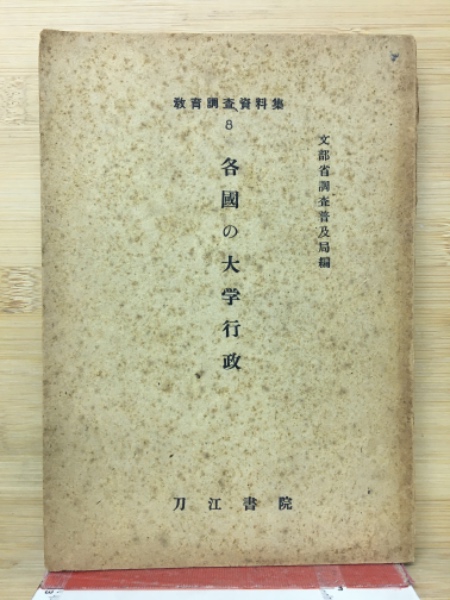 教育調査資料集
8
文部省調査普及局編
各國の大学行政
刀江書院